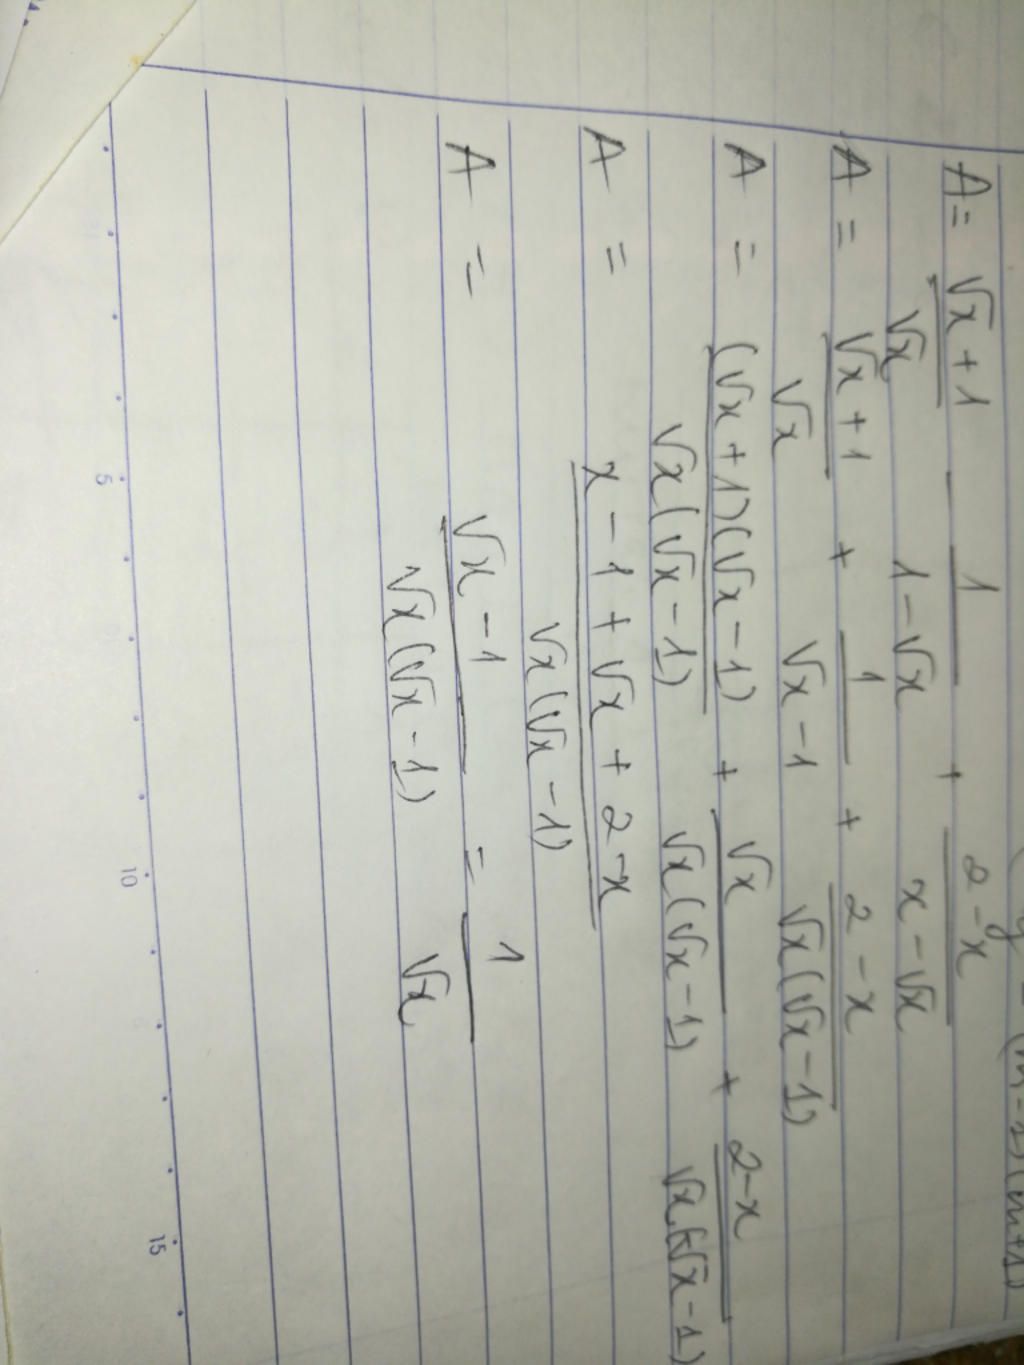 (m-1)(m+1)
A = (√x + 1)/√x - 1/(1 - √x) + (2 - x)/(x - √x)
A = (√x + 1)/√x + 1/(√x - 1) + (2 - x)/(√x(√x - 1))
A = (√x + 1)(√x - 1)/(√x(√x - 1)) + √x/(√x(√x - 1)) + (2 - x)/(√x(√x - 1))
A = (x - 1 + √x + 2 - x)/(√x(√x - 1))
A = (√x - 1)/(√x(√x - 1)) = 1/√x
5 10 15